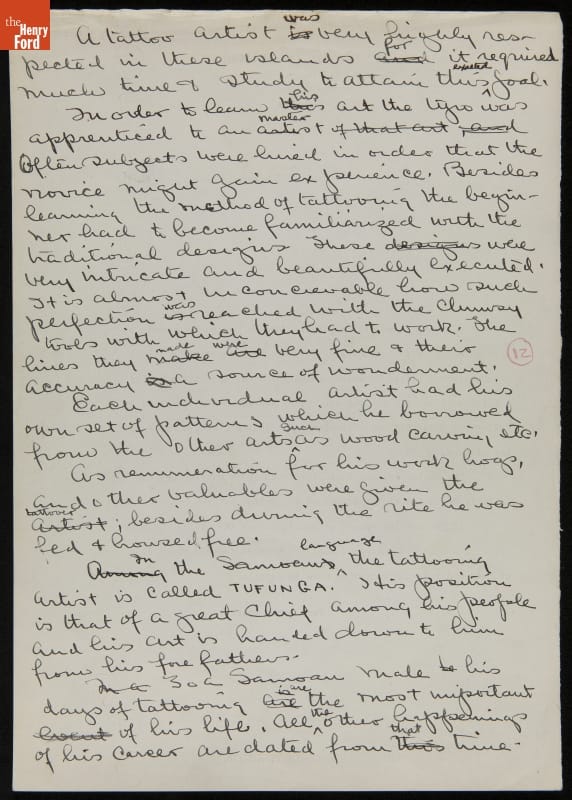 the
Henry
Ford
A tattoo artist is was very highly res-
pected in these islands and for it required
much time & study to attain this expected goal.
In order to learn this his art the tyro was
apprenticed to an artist master of that art, and
Often subjects were hired in order that the
novice might gain experience. Besides
learning the method of tattooing the begin-
ner had to become familiarized with the
traditional designs. These designs were
very intricate and beautifully executed.
It is almost inconceivable how such
perfection is was reached with the clumsy
tools with which they had to work. The
lines they make made are were very fine & their
accuracy is a source of wonderment.
12
Each individual artist had his
own set of patterns which he borrowed
from the other arts such as wood carving etc.
As remuneration for his work hogs,
and other valuables were given the
artist tattooer; besides during the rite he was
fed & housed free.
Among In the Samoans language, the tattooing
artist is called TUFUNGA. His position
is that of a great Chief among his people
and his art is handed down to him
from his fore fathers.
To a Samoan male his
days of tattooing are is are the most important
event of his life. All the other happenings
of his career are dated from this that time.